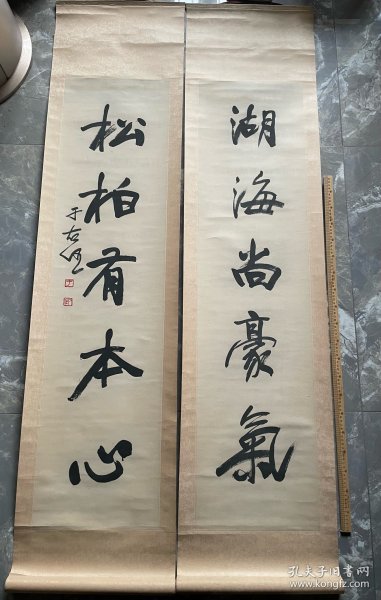 湖海尚豪氣
松柏有本心
于右任
孔夫子旧书网
www.kongfz.com